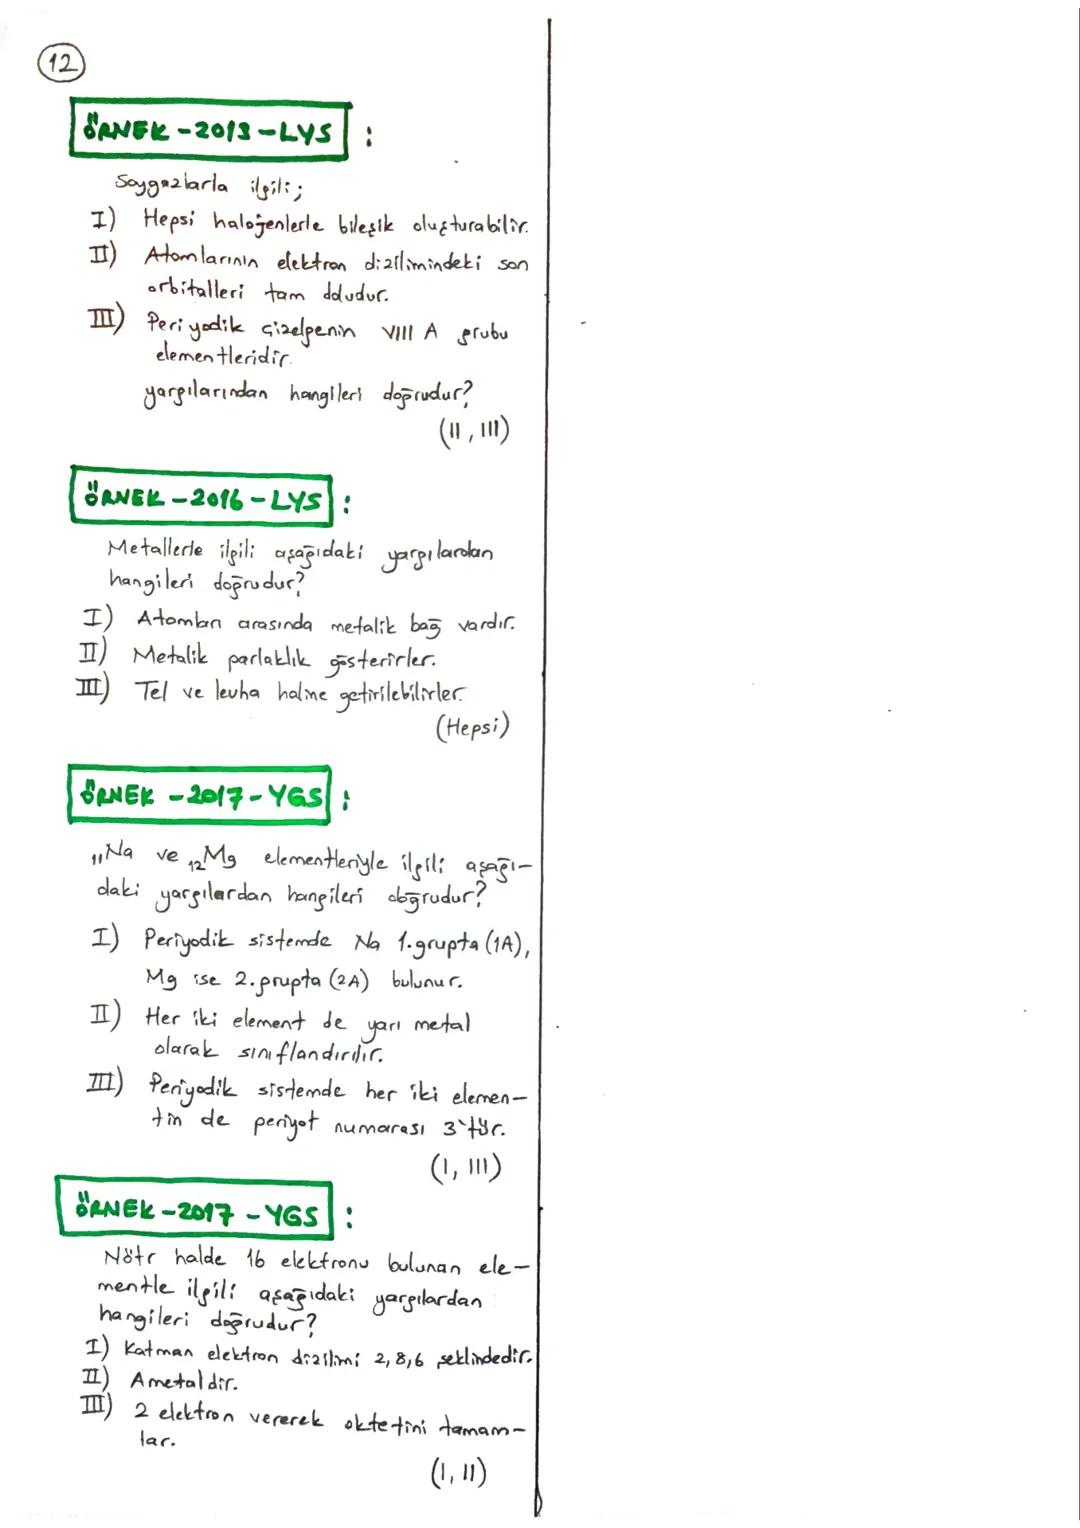 12
ÖRNEK - 2013 - LYS :
Soygazlarla ilgili;
I) Hepsi halojenlerle bileşik oluşturabilir.
II) Atomlarının elektron dizilimindeki son
orbitalleri tam doludur.
III) Periyodik çizelgenin VIII A grubu
elementleridir.
yargılarından hangileri doğrudur?
(II, III)
ÖRNEK - 2016 - LYS :
Metallerle ilgili aşağıdaki yargılardan
hangileri doğrudur?
I) Atomları arasında metalik bağ vardır.
II) Metalik parlaklık gösterirler.
III) Tel ve levha haline getirilebilirler.
(Hepsi)
ÖRNEK - 2017 - YGS :
₁₁Na ve ₁₂Mg elementleriyle ilgili aşağı-
daki yargılardan hangileri doğrudur?
I) Periyodik sistemde Na 1.grupta (1A),
Mg ise 2.grupta (2A) bulunur.
II) Her iki element de yarı metal
olarak sınıflandırılır.
III) Periyodik sistemde her iki elemen-
tin de periyot numarası 3'tür.
(I, III)
ÖRNEK - 2017 - YGS :
Nötr halde 16 elektronu bulunan ele-
mentle ilgili aşağıdaki yargılardan
hangileri doğrudur?
I) Katman elektron dizilimi 2,8,6 şeklindedir.
II) Ametaldir.
III) 2 elektron vererek oktetini tamam-
lar.
(I, II)